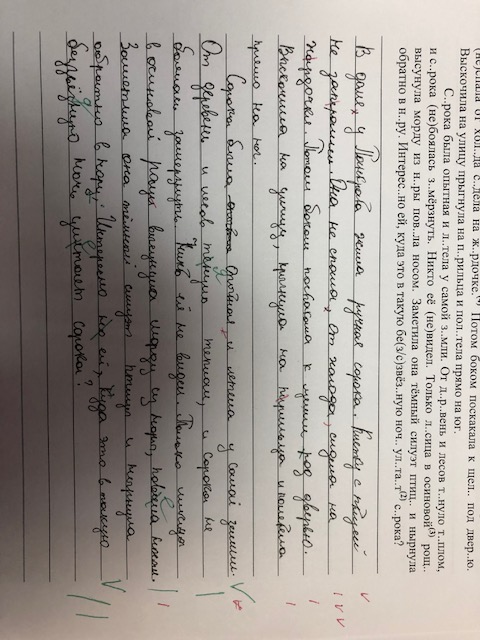 (не)спала от хол..да с..дела на ж..рдочке.(4) Потом боком поскакала к щел.. под двер..ю.
Выскочила на улицу прыгнула на п..рильца и пол..тела прямо на юг.
С..рока была опытная и л..тела у самой з..мли. От д..р..вень и лесов т..нуло т..плом,
и с..рока (не)боялась з..мёрзнуть. Никто её (не)видел. Только л..сица в осиновой(3) рощ..
высунула морду из н..ры пов..ла носом. Заметила она тёмный силуэт птиц.. и нырнула
обратно в н..ру. Интерес..но ей, куда это в такую бе(з/с)звёз..ную ноч.. ул..та..т(2) с..рока?
В доме у жила ручная сорока. Клетку с птицей
не запирали. Она не спала, от холода, сидела на
жордочке. Потом боком поскакала к щели под дверью.
Выскочила на улицу, прыгнула на перильца и полетела
прямо на юг.
Сорока была опытная и летела у самой земли.
От деревень и лесов тянуло теплом, и сорока не
боялась замёрзнуть. Никто её не видел. Только лисица
в осиновой роще высунула морду из норы, повела носом.
Заметила она тёмный силуэт птицы и нырнула
обратно в нору. Интересно ей, куда это в такую
беззвёздную ночь улетает сорока?